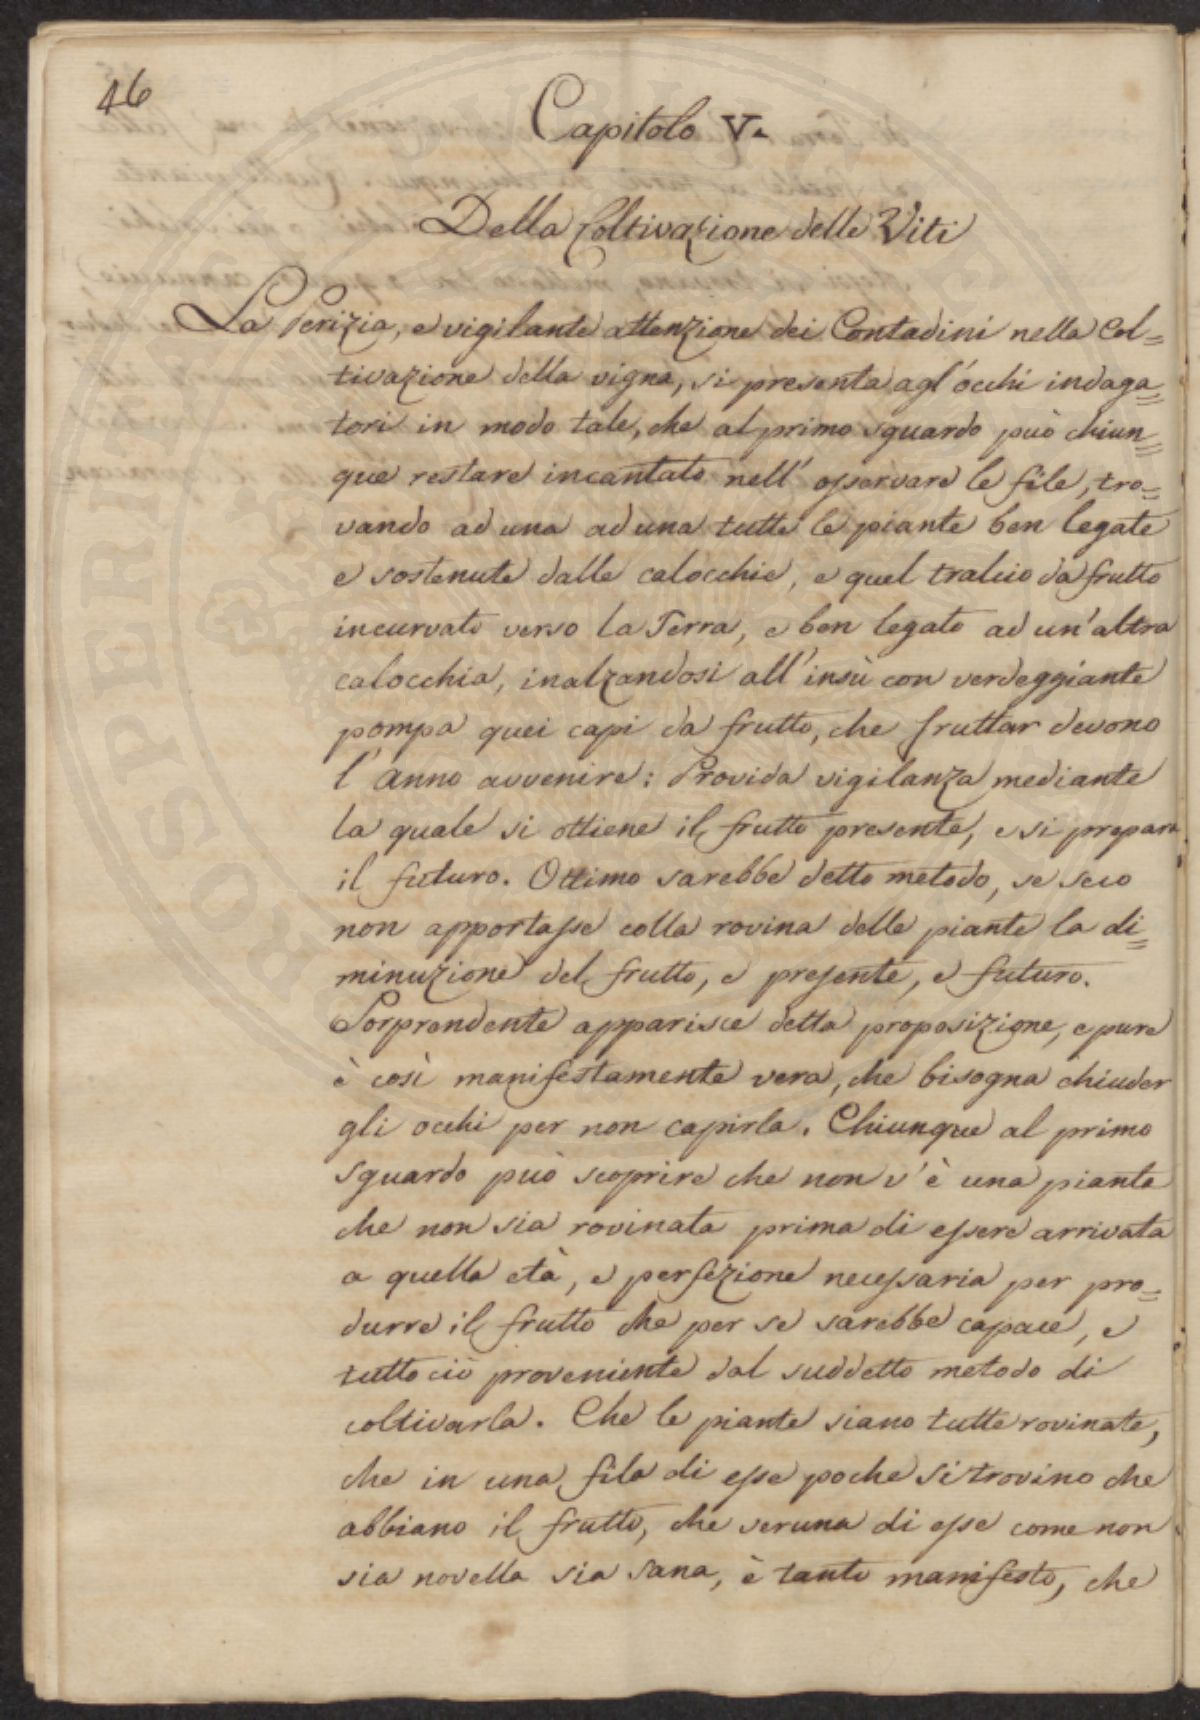 46
Capitolo V.
Della Coltivazione delle Viti
La Perizia, e vigilante attenzione dei Contadini nella Col=
tivazione della vigna, si presenta agl'occhi indaga=
tori in modo tale, che al primo sguardo può chiun=
que restare incantato nell'osservare le file, tro=
vando ad una ad una tutte le piante ben legate
e sostenute dalle calocchie, e quel tralcio da frutto
incurvato verso la Terra, e ben legato ad un'altra
calocchia, inalzandosi all'insù con verdeggiante
pompa quei capi da frutto, che fruttar devono
l'anno avvenire: Provida vigilanza mediante
la quale si ottiene il frutto presente, e si prepara
il futuro. Ottimo sarebbe detto metodo, se seco
non apportasse colla rovina delle piante la di=
minuzione del frutto, e presente, e futuro.
Sorprendente apparisce detta proposizione, e pure
è così manifestamente vera, che bisogna chiuder
gli occhi per non capirla. Chiunque al primo
sguardo può scoprire che non v'è una pianta
che non sia rovinata prima di essere arrivata
a quella età, e perfezione necessaria per pro=
durre il frutto che per se sarebbe capace, e
tutto ciò proveniente dal suddetto metodo di
coltivarla. Che le piante siano tutte rovinate,
che in una fila di esse poche si trovino che
abbiano il frutto, che veruna di esse come non
sia novella sia sana, è tanto manifesto, che
PROSPERITAS